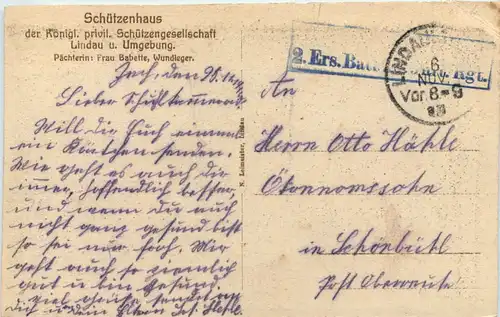 Schützenhaus
der Königl. privil. Schützengesellschaft
Lindau u. Umgebung.
Pächterin: Frau Babette, Wundleger.
Lieber
Will dir auch einmal
ein Kärtchen senden.
Wie geht es auch dir
immer, hoffendlich besser,
und wenn du auch
nicht ganz gesund bist
so sei nur froh. Mir
geht auch so ziemlich
gut u bin gesund
viel Grüße sendet
dich u dein
N. Lehmeister, Lindau
2. Ers. Rgt.
LINDAU
6
NOV
Vor. 8-9
An
Herrn Otto Hähle
Ökonnomssohn
in Schönbühl
Post Oberreute